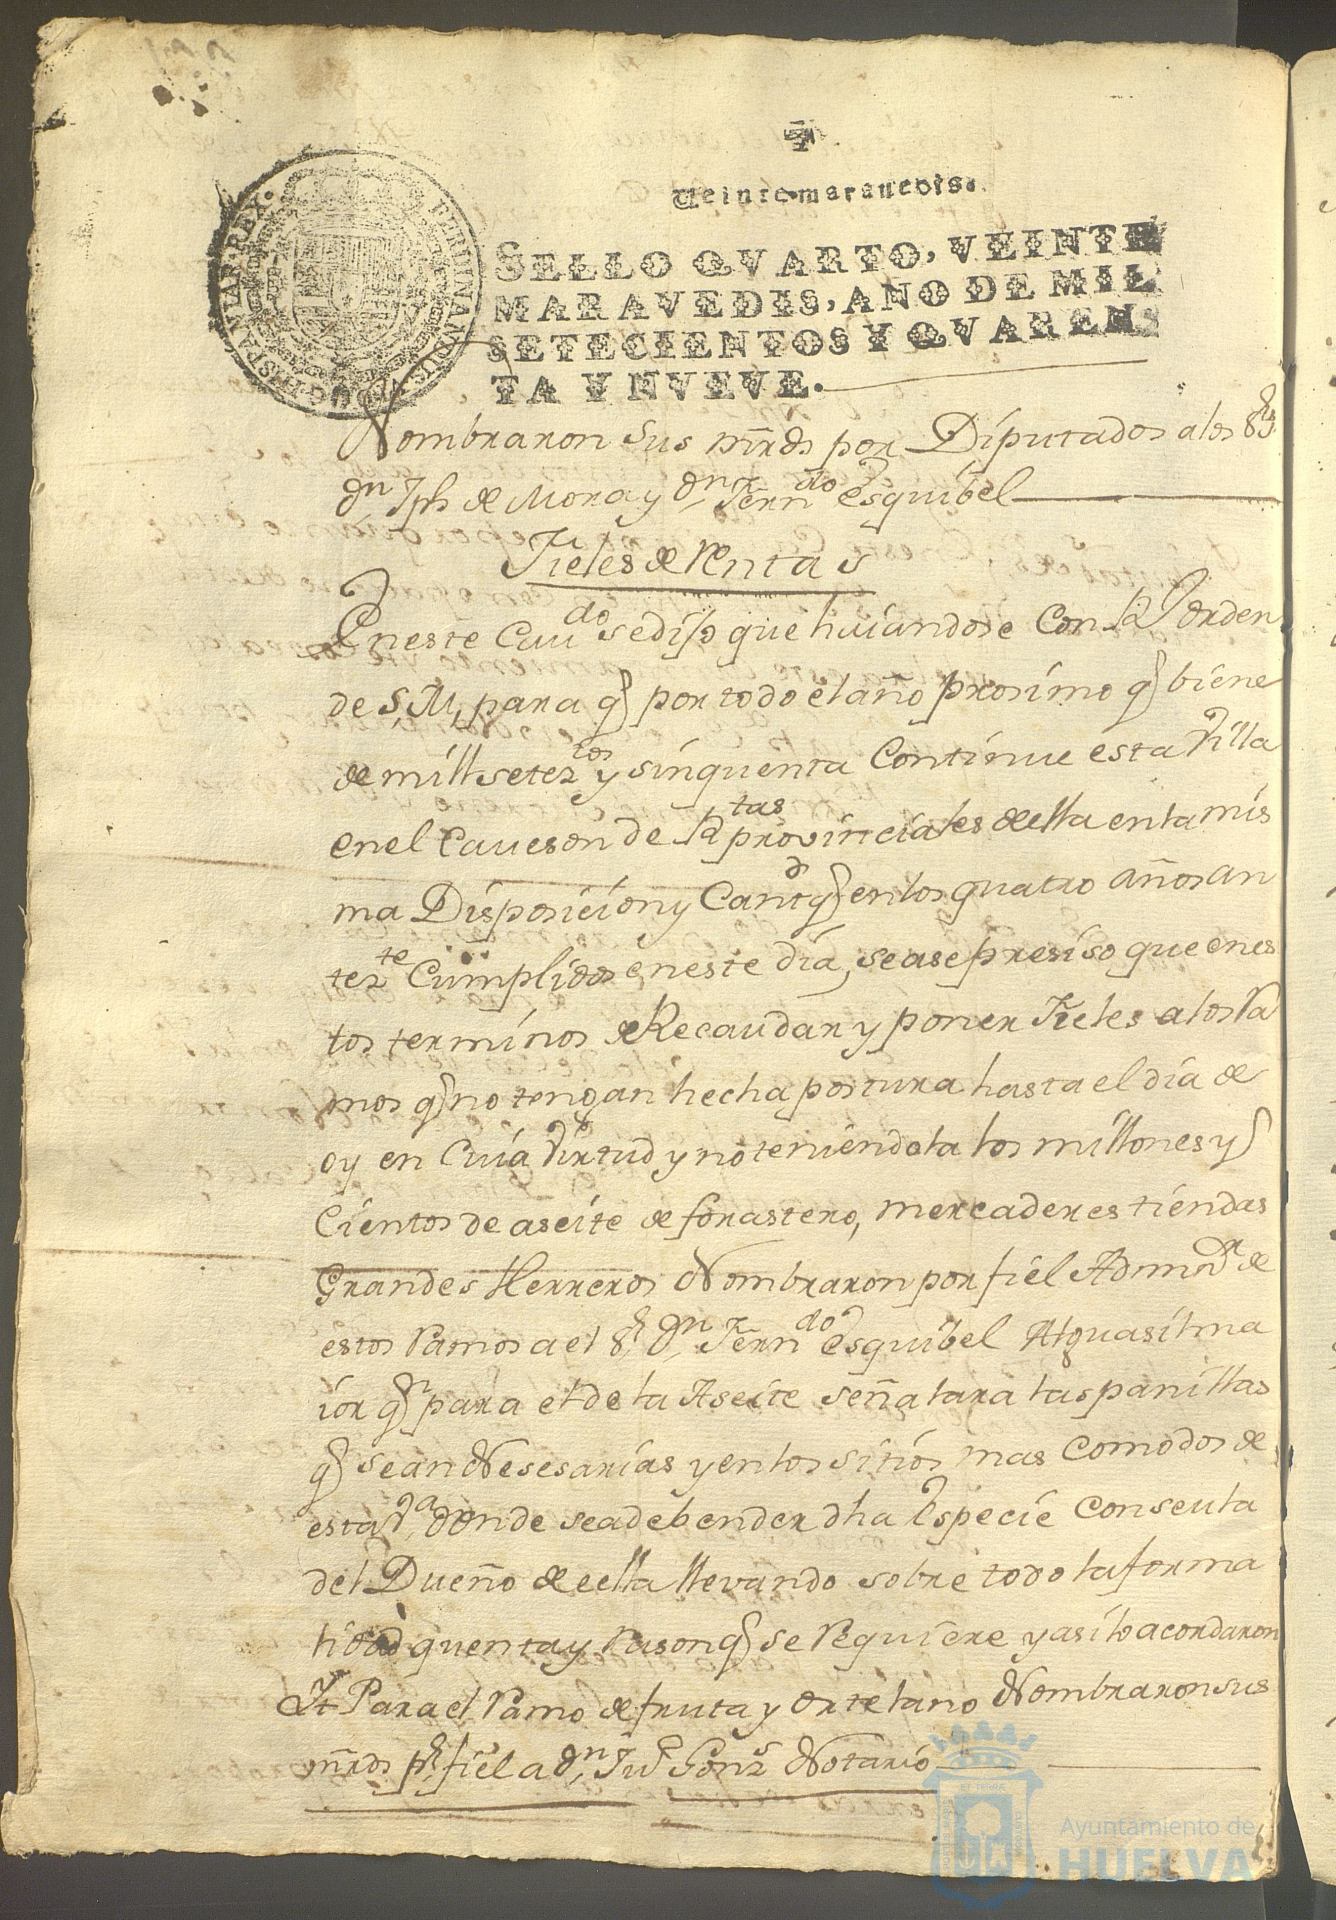 Veinte maravedis.
SELLO QVARTO, VEINTE
MARAVEDIS, AÑO DE MIL
SETECIENTOS Y QVAREN
TA Y NVEVE.
FERDINANDUS VI D G HISPANIAR REX
Nombraron Sus mrds por Diputados a los Srs
Dn Jph de Mora y Dn Ferndo Esquibel
Fieles de Rentas
En este Cavdo se dijo que hauiandose Con Rl orden
de S.M. para q por todo el año prosimo q biene
de mill setezos y sinquenta Continue esta Villa
en el Caveson de Rtas provinciales de ella en la mis
ma Disposicion y Cantd q en los quatro años an
tezte Cumplidos en este dia, se ase presiso que en es
tos terminos de Recaudar y poner Fieles a los Ra
mos q no tengan hecha postura hasta el dia de
oy en Cuia Virtud y no teniendola los millones y
Cientos de aseite de forastero, mercaderes tiendas
Grandes Herreros Nombraron por fiel Admor de
estos Ramos a el Sr Dn Ferndo Esquibel Alguasil ma
ior qn para el de la Aseite señalara las panillas
q sean Nesesarias y en los sitios mas Comodos de
esta Va donde se a de bender dha Especie
del Dueño de ella llevando sobre todo la forma
lidad quenta y Rason q se Requiere y asi lo acordaron
It Para el Ramo de fruta y ortelano Nombraron sus
mrds pr fiel a Dn Ju Gonz Notario
Ayuntamiento de
HUELVA